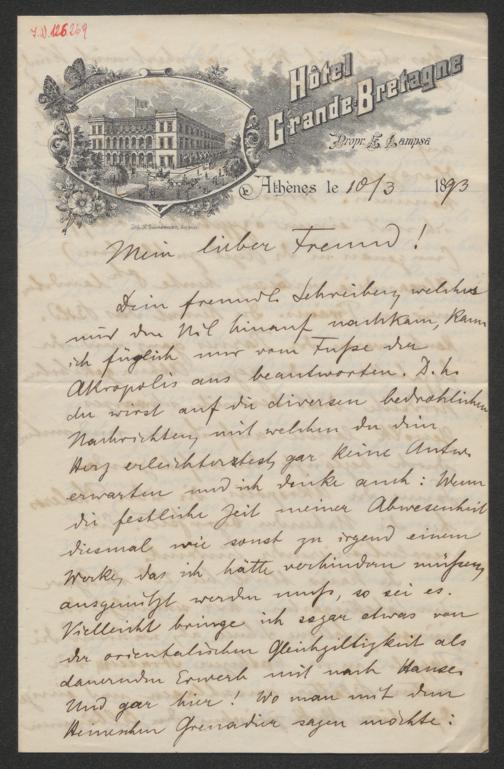 I.N. 126.269
Hôtel
Grande-Bretagne
Propr. E. Lampsa
Athènes le 10/3 1893
Mein lieber Freund!
Dein freundl. Schreiben, welches
mir den Nil hinauf nachkam, kann
ich füglich nur vom Fuße der
Akropolis aus beantworten. D. h.
du wirst auf die diversen bedrohlichen
Nachrichten, mit welchen du dein
Herz erleichtertest, gar keine Antw.
erwarten und ich denke auch: Wenn
die festliche Zeit meiner Abwesenheit
diesmal wie sonst zu irgend einem
Werke, das ich hätte verhindern müssen,
ausgenützt werden muß, so sei es.
Vielleicht bringe ich sogar etwas von
der orientalischen Gleichgiltigkeit als
dauernden Erwerb mit nach Hause.
Und gar hier! Wo man mit dem
Heineschen Grenadier sagen möchte: